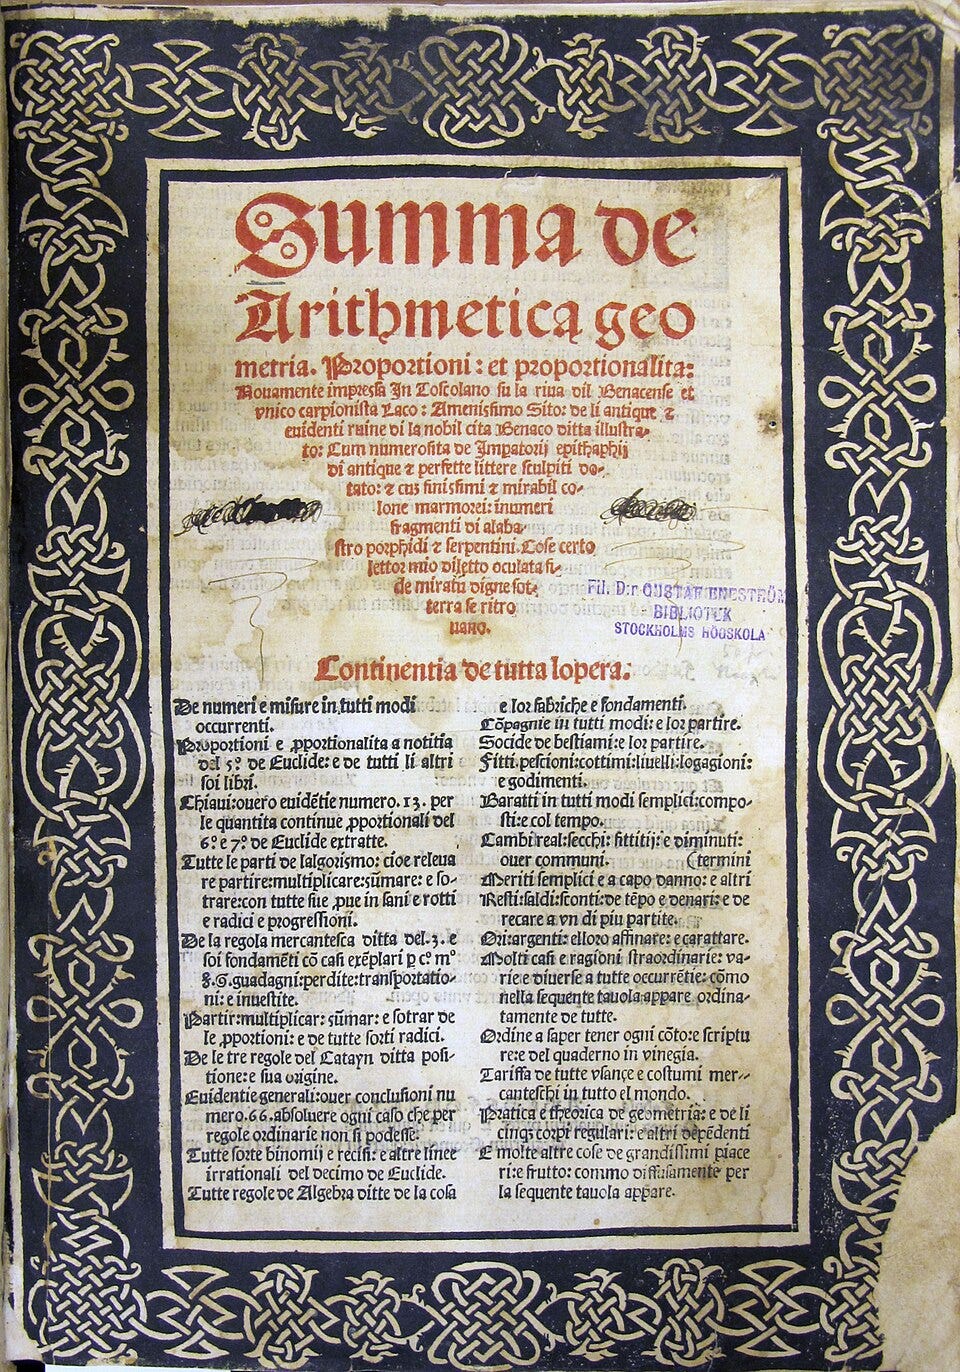 Summa de
Arithmetica geo
metria. Proportioni: et proportionalita:
Nouamente impressa In Toscolano su la riua dil Benacense et
vnico carpionista Laco: Amenissimo Sito: de li antique ⁊
euidenti ruine di la nobil cita Benaco ditta illustra-
to: Cum numerosita de Impatorij epithaphij
di antique ⁊ perfette littere sculpiti do-
tato: ⁊ cus finissimi ⁊ mirabil co-
lone marmorei: inumeri
fragmenti di alaba-
stro porphidi ⁊ serpentini. Cose certo
lettor mio diletto oculata fi-
de miratu digne sot-
terra se ritro
uano.
Fil. D:r GUSTAF ENESTRÖM
BIBLIOTEK
STOCKHOLMS HÖGSKOLA
Continentia de tutta lopera.
De numeri e misure in tutti modi
occurrenti.
Proportioni e ꝓportionalita a notitia
del 5º. de Euclide: e de tutti li altri
soi libri.
Chiaui: ouero euidẽtie numero. 13. per
le quantita continue ꝓportionali del
6º. e 7º. de Euclide extratte.
Tutte le parti de lalgorismo: cioe releua
re partire: multiplicare: sũmare: e so-
trare: con tutte sue ꝓue in sani e rotti
e radici e progressioni.
De la regola mercantesca ditta del. 3. e
soi fondamẽti cõ casi exẽplari ꝑ cº. mº
8. G. guadagni: perdite: transportatio-
ni: e inuestite.
Partir: multiplicar: sũmar: e sotrar de
le ꝓportioni: e de tutte sorti radici.
De le tre regole del Catayn ditta posi-
tione: e sua origine.
Euidentie generali: ouer conclusioni nu
mero. 66. absoluere ogni caso che per
regole ordinarie non si podesse.
Tutte sorte binomij e recisi: e altre linee
irrationali del decimo de Euclide.
Tutte regole de Algebra ditte de la cosa
e lor fabriche e fondamenti.
Cõpagnie in tutti modi: e lor partire.
Socide de bestiami: e lor partire.
Fitti: pescioni: cottimi: liuelli: logagioni:
e godimenti.
Baratti in tutti modi semplici: compo-
sti: e col tempo.
Cambi reali: secchi: fittitij: e diminuti:
ouer communi. (termini
Meriti semplici e a capo danno: e altri
Resti: saldi: sconti: de tẽpo e denari: e de
recare a vn di piu partite.
Ori: argenti: e lloro affinare: e carattare.
Molti casi e ragioni straordinarie: va-
rie e diuerse a tutte occurrẽtie: cõmo
nella sequente tauola appare ordina-
tamente de tutte.
Ordine a saper tener ogni cõto: e scriptu
re: e del quaderno in vinegia.
Tariffa de tutte vsançe e costumi mer-
canteschi in tutto el mondo.
Pratica e theorica de geometria: e de li
cinq3 corpi regulari: e altri dependenti
E molte altre cose de grandissimi piace
ri: e frutto: commo diffusamente per
la sequente tauola appare.